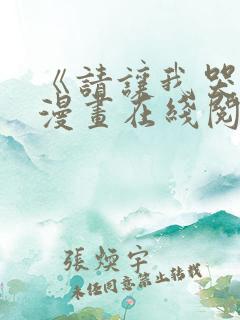 《請讓我哭
漫畫在綫閱
張煥宇
未經同意禁止轉載